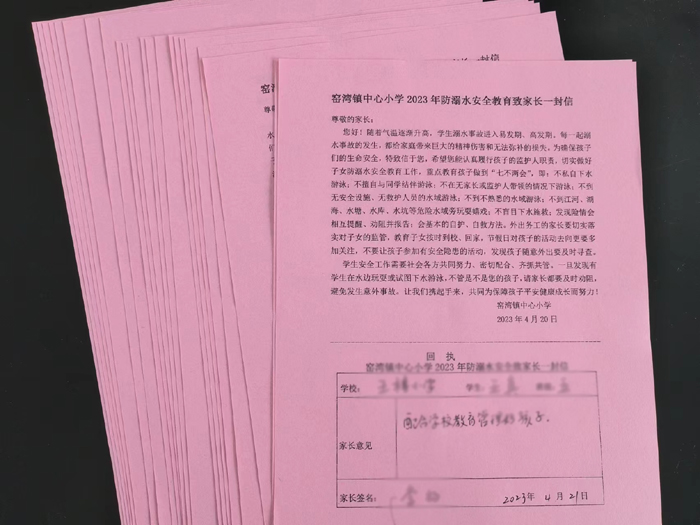 窑湾镇中心小学2023年防溺水安全教育致家长一封信
尊敬的家长：
您好！随着气温逐渐升高，学生溺水事故进入易发期、高发期，每一起溺
水事故的发生，都给家庭带来巨大的精神伤害和无法弥补的损失。为确保孩子
们的生命安全，特致信于您，希望您能认真履行孩子的监护人职责，切实做好
子女防溺水安全教育工作，重点教育孩子做到“七不两会”，即：不私自下水
游泳；不擅自与同学结伴游泳；不在无家长或监护人带领的情况下游泳；不到
无安全设施、无救护人员的水域游泳；不到不熟悉的水域游泳；不到江河、湖
海、水塘、水库、水坑等危险水域旁玩耍嬉戏；不盲目下水施救；发现险情会
相互提醒、劝阻并报告；会基本的自护、自救方法。外出务工的家长要切实落
实对子女的监管，教育子女按时到校、回家，节假日对孩子的活动去向更要多
加关注，不要让孩子参加有安全隐患的活动，发现孩子随意外出要及时寻查。
学生安全工作需要社会各方共同努力、密切配合、齐抓共管，一旦发现有
学生在水边玩耍或试图下水游泳，不管是不是您的孩子，请家长都要及时劝阻，
避免发生意外事故。让我们携起手来，共同为保障孩子平安健康成长而努力！
窑湾镇中心小学
2023年4月20日
回 执
窑湾镇中心小学2023年防溺水安全教育致家长一封信
学校：
学生：
家长意见
配合学校教育管理好孩子.
家长签名：
2023年 4月 21日